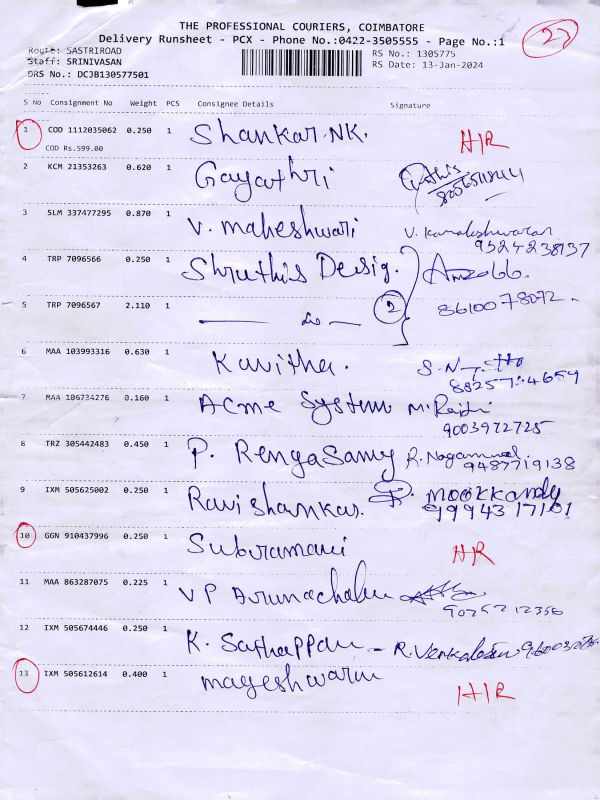 THE PROFESSIONAL COURIERS, COIMBATORE
Delivery Runsheet - PCX - Phone No.:0422-3505555 - Page No.:1
23
Route: SASTRIROAD
RS No.: 1305775
Staff: SRINIVASAN
RS Date: 13-Jan-2024
DRS No.: DCJB130577501
S No Consignment No Weight PCS Consignee Details Signature
1 COD 1112035062 0.250 1 Shankar.NK. H/R
COD Rs.599.00
2 KCM 21353263 0.620 1 Gayathri
3 SLM 337477295 0.870 1 V. maheshwari V. Kamaleshwaran
9524238137
4 TRP 7096566 0.250 1 Shruthis Desig.
5 TRP 7096567 2.110 1 2 8610078072.
6 MAA 103993316 0.630 1 Kavitha.
7 MAA 106734276 0.160 1 Acme System
9003972725
8 TRZ 305442483 0.450 1 P. RengaSamy R. Nagammal
9487719138
9 IXM 505625002 0.250 1 Ravishankar. mookkandy
9994317101
10 GGN 910437996 0.250 1 Subramani H/R
11 MAA 863287075 0.225 1 VP Arunachalu
12 IXM 505674446 0.250 1 K. Sathappan - R. Venkatesan
13 IXM 505612614 0.400 1 mageshwarn H/R